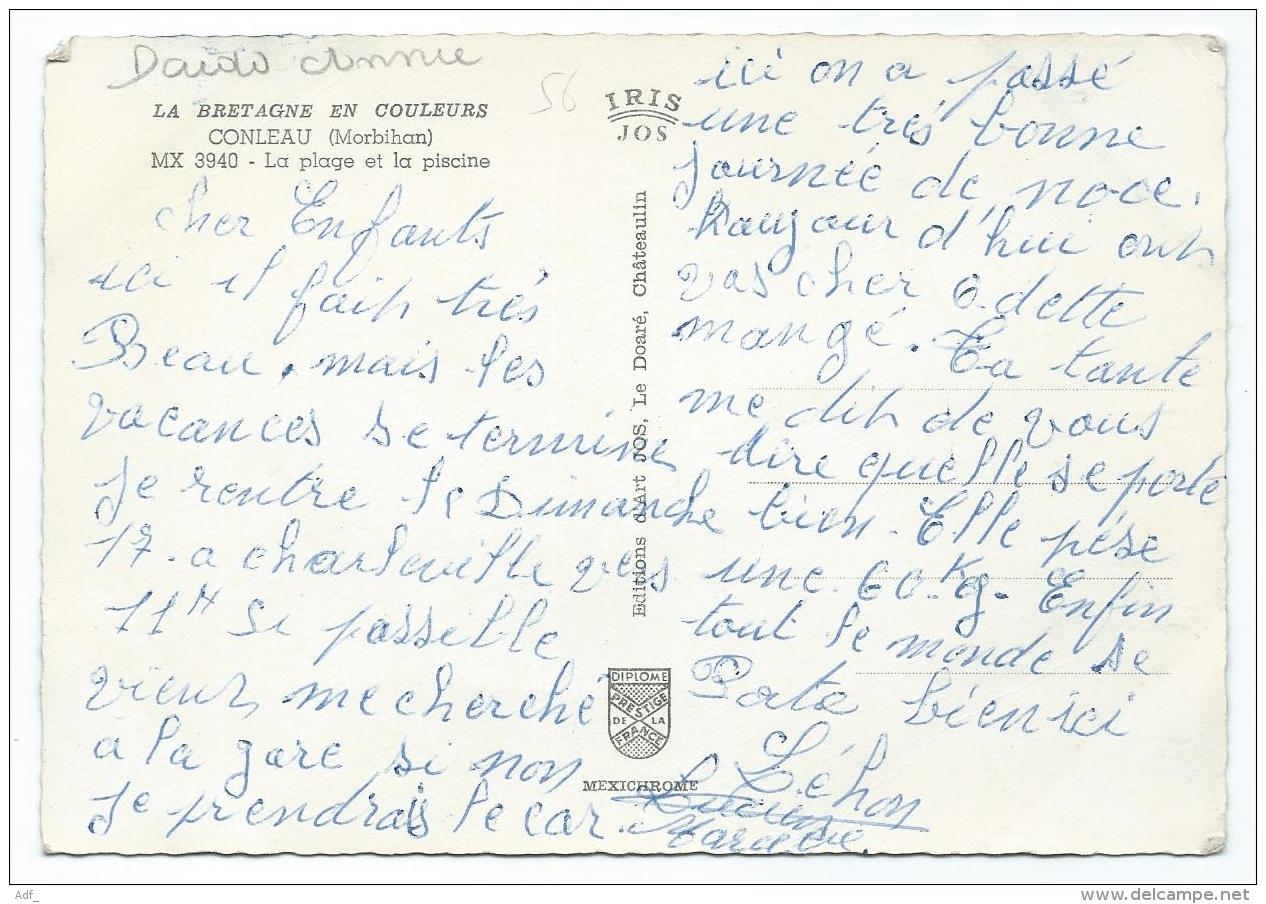 56
LA BRETAGNE EN COULEURS
CONLEAU (Morbihan)
MX 3940 - La plage et la piscine
cher Enfants
ici il fait très
Beau, mais les
vacances se termine
je rentre le Dimanche
17 - a charleville vers
11H Si possible
viens me cherché
a la gare si non
je prendrais le car.
IRIS
JOS
Editions d'Art JOS, Le Doaré, Châteaulin
DIPLOME
PRESTIGE
DE LA
FRANCE
MEXICHROME
ici on a passé
une trés bonne
journée de noce.
d'hui ont
vas cher Odette
mangé. Ta tante
me dit de vous
dire quelle se porte
bien - Elle pése
une 60 Kg - Enfin
tout le monde se
Porte bien ici
Léhon
Adf_
www.delcampe.net